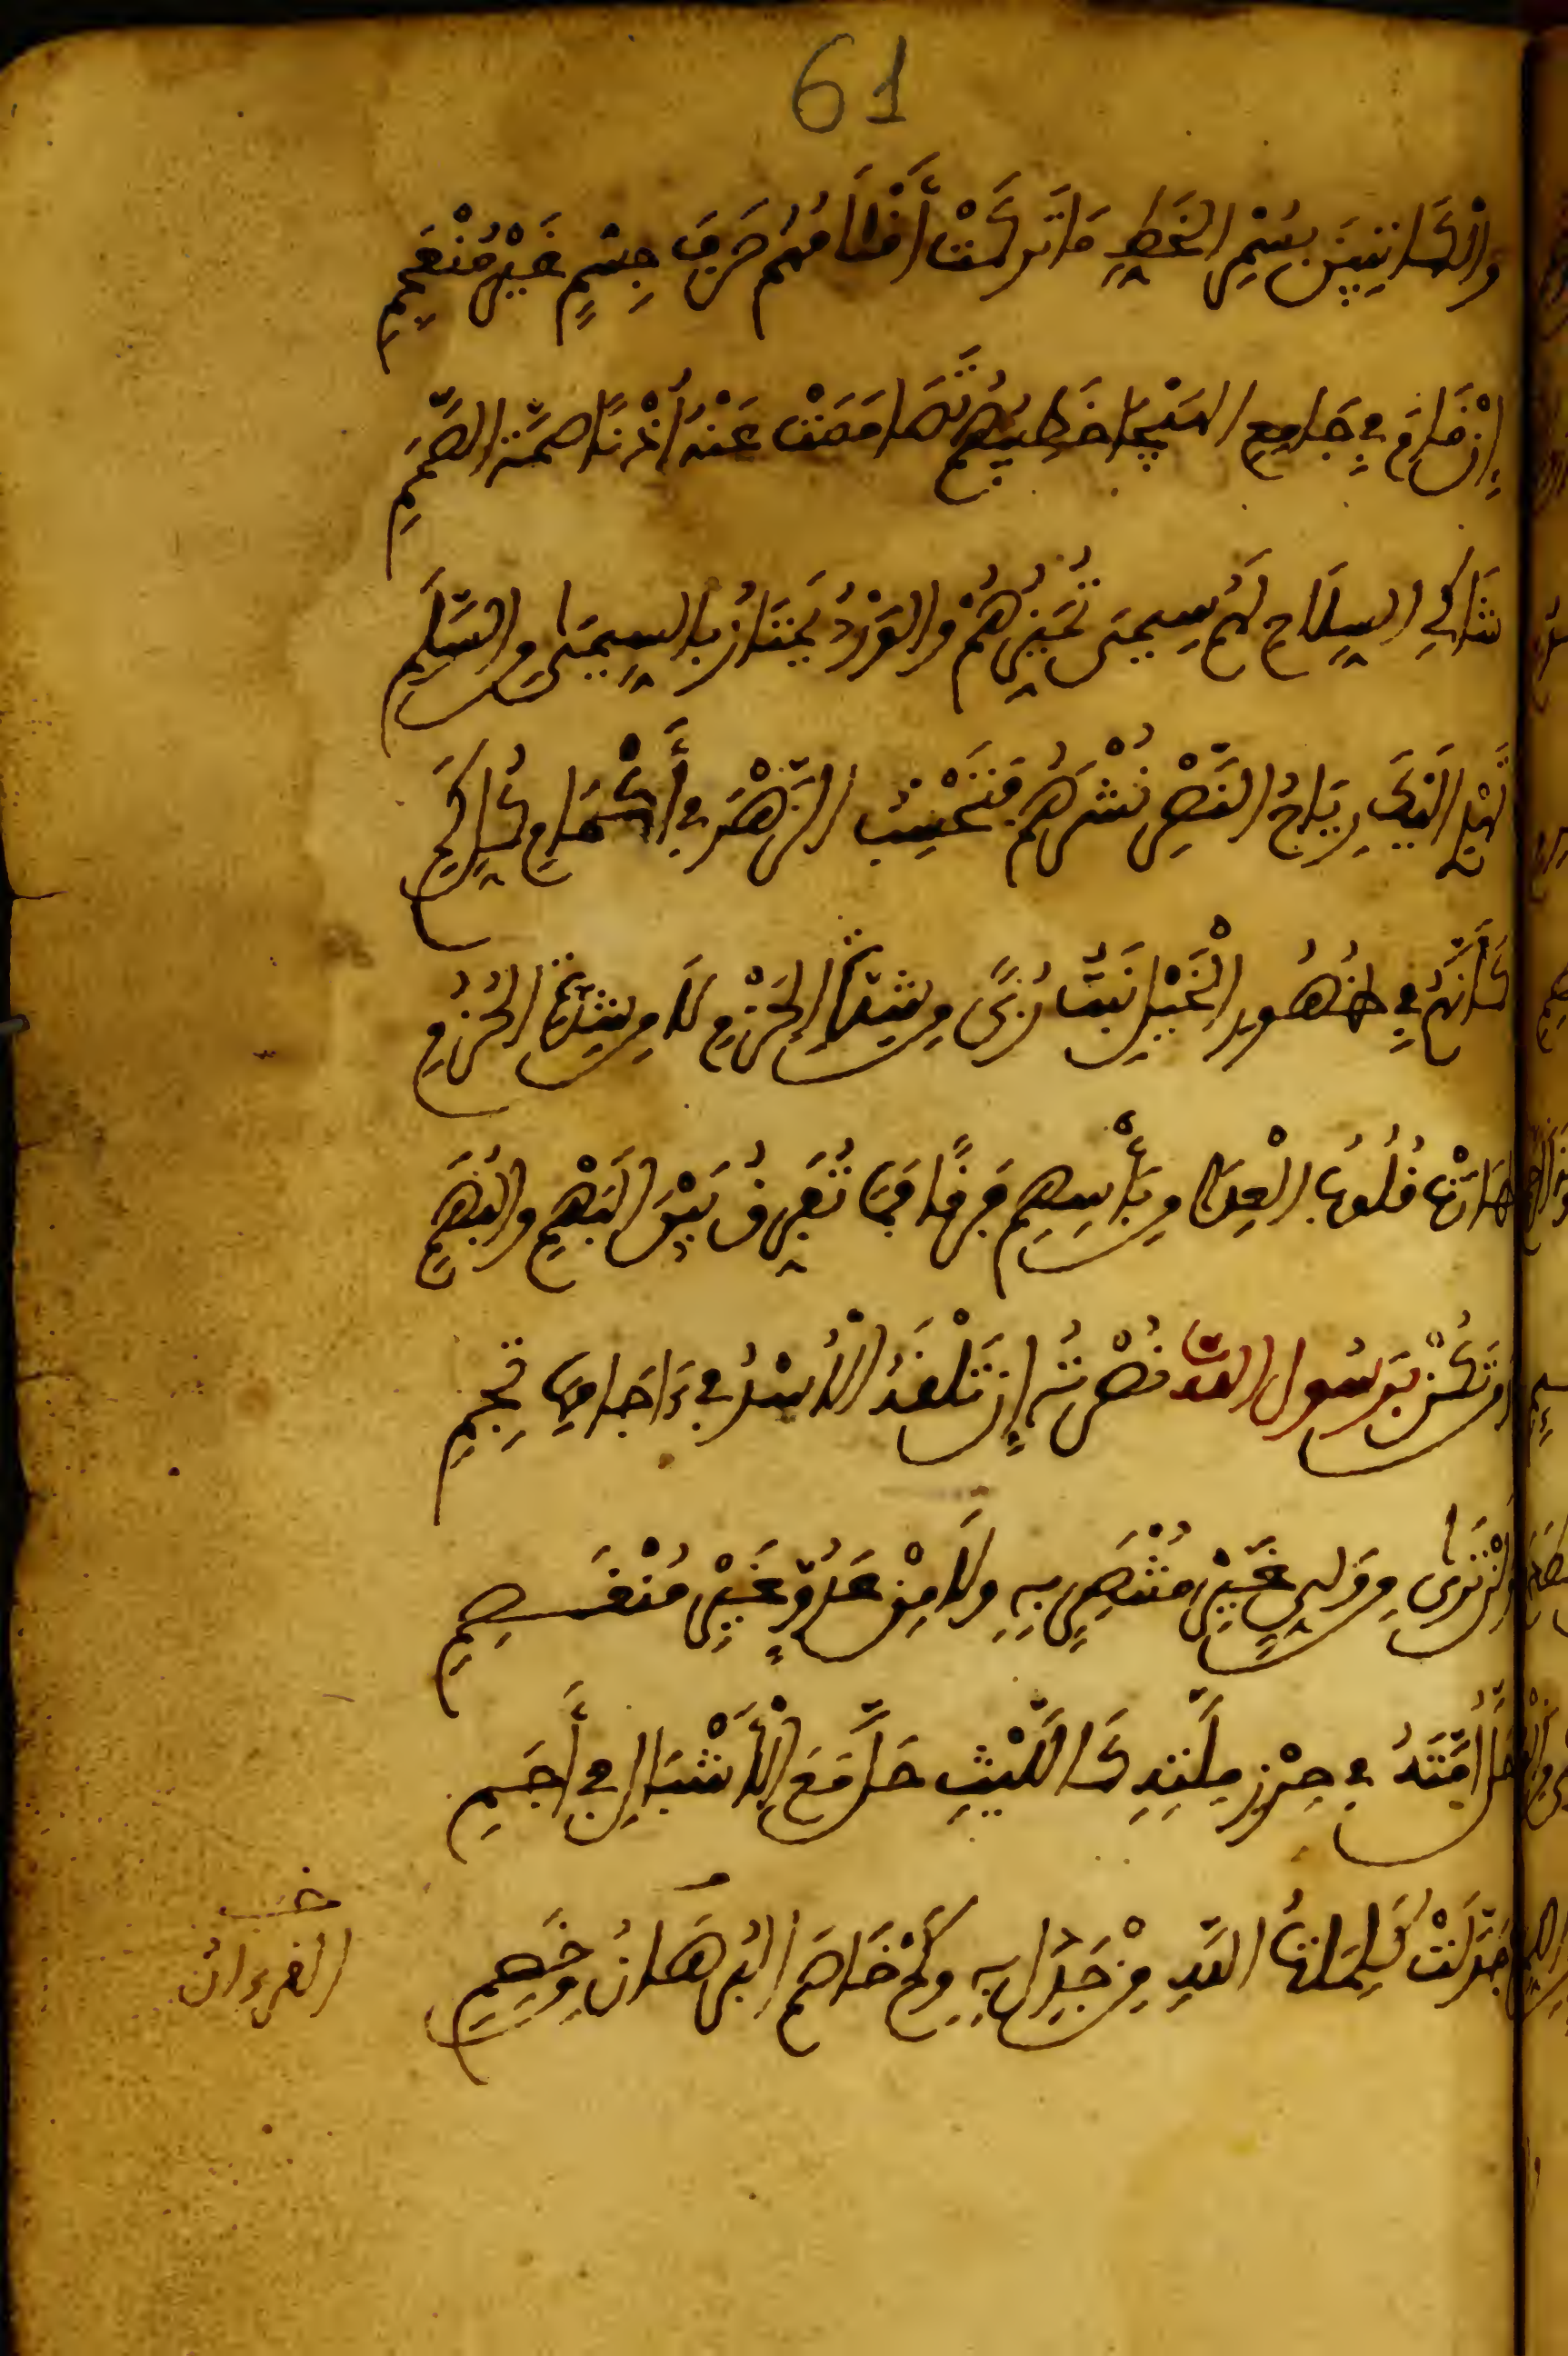 61
وَالْكَاتِبِينَ بِسُمْرِ الْخَطِّ مَا تَرَكَتْ أَقْلَامُهُمْ حَرْفَ جِسْمٍ غَيْرَ مُنْعَجِمِ
إِنْ قَامَ فِي جَامِعِ الهَيْجَا خَطِيبُهُمُ تَصَامَمَتْ عَنْهُ أُذْنَا صِمَّةِ الصِّمَمِ
شَاكِي السِّلَاحِ لَهُمْ سِيمَى تُمَيِّزُهُمْ وَالوَرْدُ يَمْتَازُ بِالسِّيمَى مِنَ السَّلَمِ
تُهْدِي إِلَيْكَ رِيَاحُ النَّصْرِ نَشْرَهُمُ فَتَحْسِبُ الزَّهْرَ فِي أَكْمَامِ كُلَّ كَمِي
كَأَنَّهُمْ فِي ظُهُورِ الْخَيْلِ نَبْتُ رُبًى مِنْ شِدَّةِ الحَزْمِ لَا مِنْ شِدَّةِ الحُزُمِ
طَارَتْ قُلُوبُ الْعِدَا مِنْ بَأْسِهِمْ فَرَقًا فَمَا تُفَرِّقُ بَيْنَ البَهْمِ وَالبُهَمِ
وَمَنْ تَكُنْ بِرَسُولِ اللَّهِ نُصْرَتُهُ إِنْ تَلْقَهُ الْأُسْدُ فِي ءَاجَامِهَا تَجِمِ
وَلَنْ تَرَى مِنْ وَلِيٍّ غَيْرَ مُنْتَصِرٍ بِهِ وَلَا مِنْ عَدُوٍّ غَيْرَ مُنْقَصِمِ
أَحَلَّ أُمَّتَهُ فِي حِرْزِ مِلَّتِهِ كَاللَّيْثِ حَلَّ مَعَ الْأَشْبَالِ فِي أَجَمِ
كَمْ جَدَّلَتْ كَلِمَاتُ اللَّهِ مِنْ جَدِلٍ بِهِ وَكَمْ خَاصَمَ الْبُرْهَانُ مِنْ خَصِمِ
القرءان